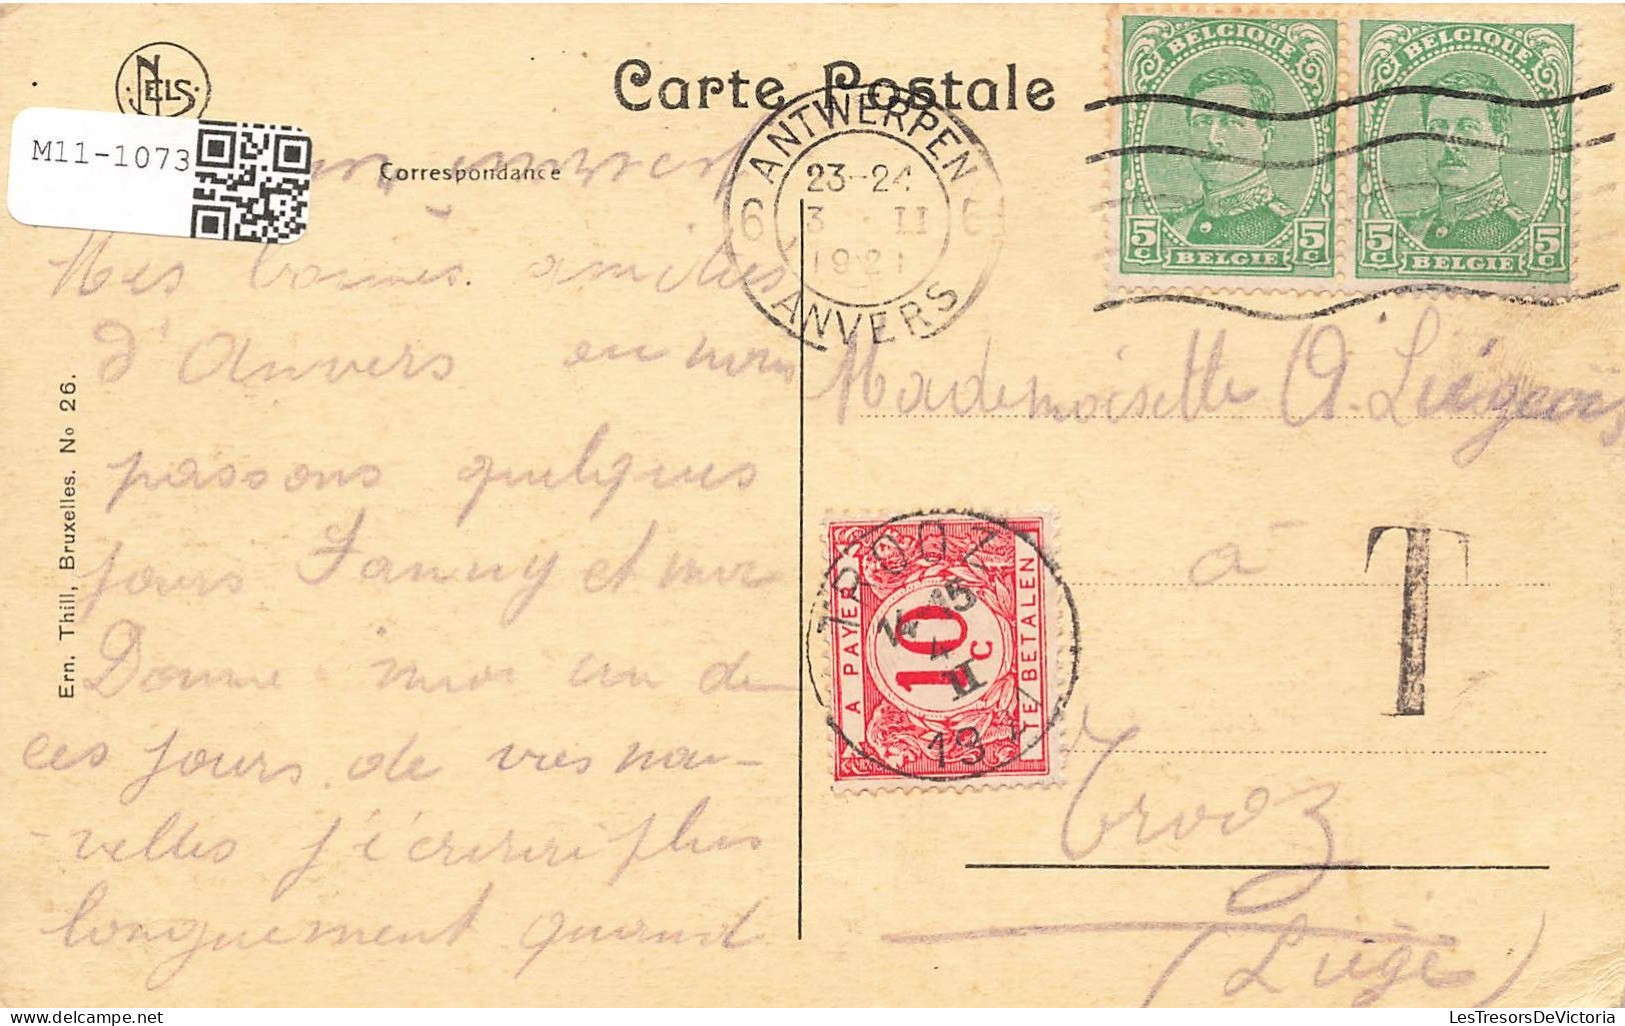 NELS
Carte Postale
M11-1073
Correspondance
ANTWERPEN
23-24
3 II
1921
6 6
ANVERS
BELGIQUE
5c 5c
BELGIE
BELGIQUE
5c 5c
BELGIE
Mes bonnes amitiés
d'Anvers où nous
passons quelques
jours Fanny et moi
Donne-moi un de
ces jours de vos nou-
-velles j'écrirai plus
longuement quand
Ern. Thill, Bruxelles. No 26.
Mademoiselle A. Liégeois
à
T
A PAYER
10 c
TE BETALEN
TROOZ
4
II
Trooz
(Liège)
LesTresorsDeVictoria